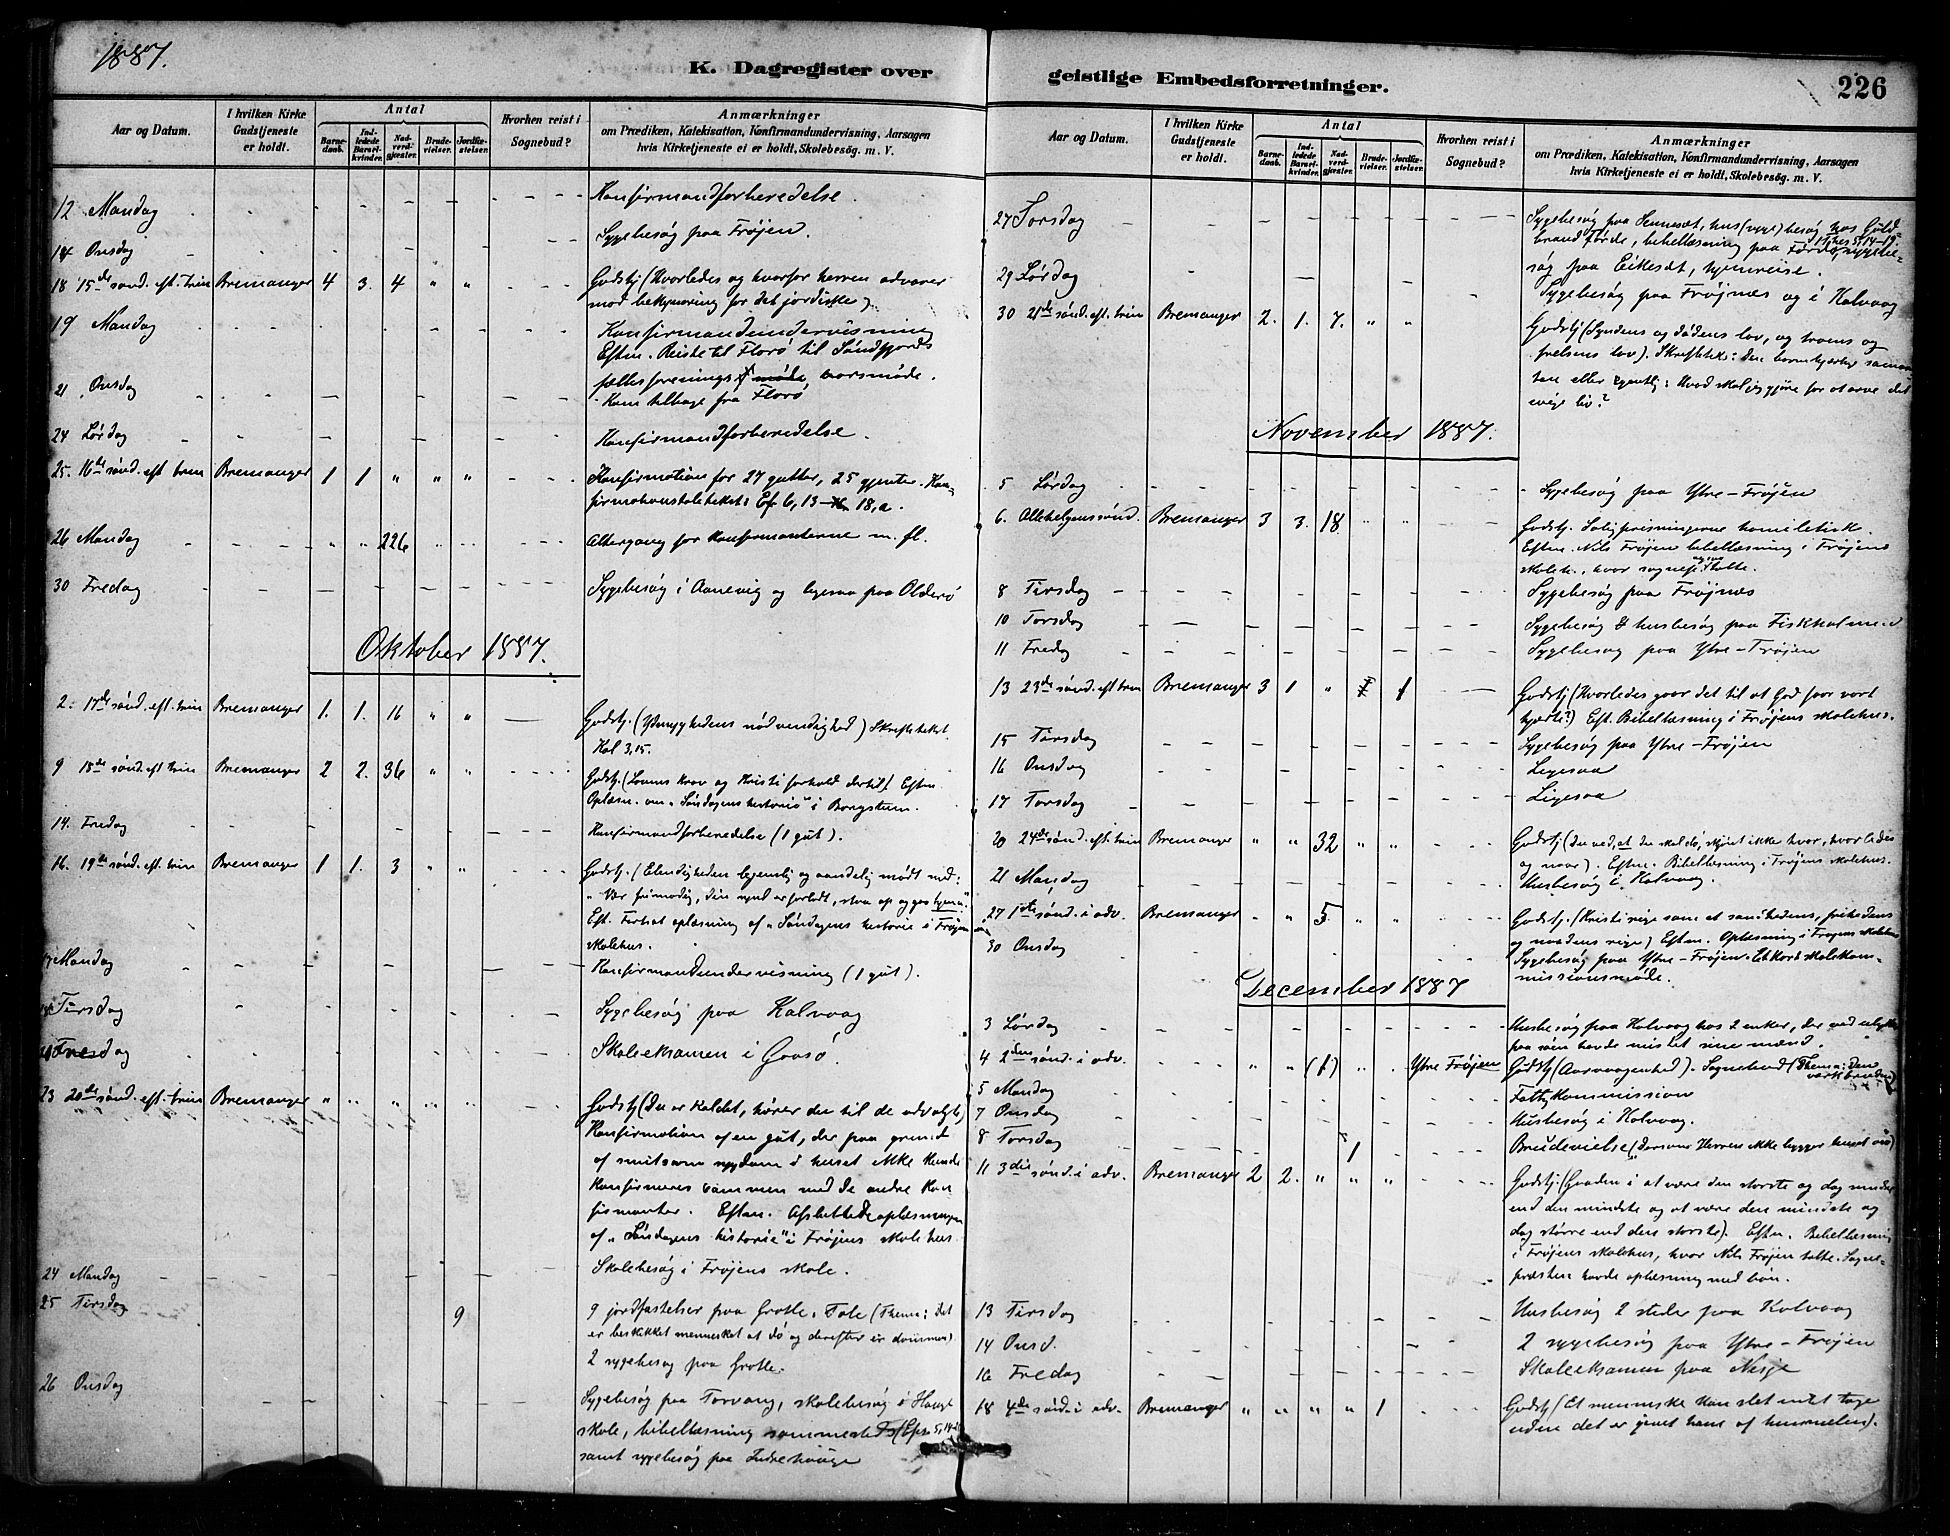 1887.
K. Dagregister over
Aar og Datum.
I hvilken Kirke Gudstjeneste er holdt.
Antal
Barnedaab.
Indledede Barselkvinder.
Nadverdgjæster.
Brudevielser.
Jordfæstelser.
Hvorhen reist i Sognebud?
Anmærkninger
om Prædiken, Katekisation, Konfirmandundervisning, Aarsagen
hvis Kirketjeneste ei er holdt, Skolebesøg. m. V.
12 Mandag - - - Konfirmandforberedelse.
14 Onsdag - - - Sygebesøg paa Frøjen.
18 15de sønd. eft. trin Bremanger 4 3. 4 " " - Godstj (Hvorledes og hvorfor herren advarer
mod bekymring for det jordiske).
19 Mandag - - - Konfirmandundervisning
Eftm. Reiste til Florø til Søndfjords
fællesforenings aarsmøde.
21 Onsdag - - - Kom tilbage fra Florø
24 Lørdag - - - Konfirmandforberedelse.
25. 16de sønd. eft. trin Bremanger 1 1 " " " - Konfirmation for 27 gutter, 25 gjenter. Kon-
firmationstaletekst: Ef 6, 13-18,a.
26 Mandag - - " " 226 - Altergang for konfirmanterne m. fl.
30 Fredag - - - Sygebesøg i Aanevig og ligesaa paa Olderø
Oktober 1887.
2. 17de sønd. eft. trin Bremanger 1. 1. 16 " " - Godstj. (Ydmyghedens nødvendighed) Skriftetekst
Kol 3,15.
9 18de sønd. eft trin Bremanger 2 2. 36 " " - Godstj. (Lovens krav og Kristi forhold dertil) Eftm.
Oplæsn. om "Søndagens historie" i
14. Fredag - - - Konfirmandforberedelse (1 gut).
16. 19de sønd. eft. trin Bremanger 1 1. 3 " " - Godstj. (Elendigheden legemlig og aandelig mødt med:
"Vær frimodig, din synd er forladt, staa op og gaa hjem".
Eft. Fortsat oplæsning af "Søndagens historie i Frøjens
skolehus.
17 Mandag - - - Konfirmandundervisning (1 gut).
18 Tirsdag - - - Sygebesøg paa Kalvaag
Skoleeksamen i
23 20de sønd. eft. trin Bremanger " " " " " - Godstj (Du er kaldet, hører du til de udvalgte)
Konfirmation af en gut, der paa grund
af smitsom sygdom i huset ikke kunde
konfirmeres sammen med de andre kon
firmanter. Eftm. Afsluttede oplæsningen
af "Søndagens historie" i Frøjens skolehus.
24 Mandag - - - Skolebesøg i Frøjens skole.
25 Tirsdag 9 9 jordfæstelser paa Grotle. Tale (Thema: det
er beskikket mennesket at dø og derefter er dommen)
2 sygebesøg paa Grotle.
26 Onsdag - - - Sygebesøg paa Torvang, skolebesøg i Hauge
skole, bibellæsning sammesteds (Efes. 5,14-21)
samt sygebesøg paa Indrehauge
geistlige Embedsforretninger.
226
Aar og Datum.
I hvilken Kirke Gudstjeneste er holdt.
Antal
Barnedaab.
Indledede Barselkvinder.
Nadverdgjæster.
Brudevielser.
Jordfæstelser.
Hvorhen reist i Sognebud?
Anmærkninger
om Prædiken, Katekisation, Konfirmandundervisning, Aarsagen
hvis Kirketjeneste ei er holdt, Skolebesøg. m. V.
27 Torsdag - - - Sygebesøg paa Sennesæt, hus (syge) besøg hos Guld-
brand Førde, bibellæsning paa Førde, sygebe-
søg paa Eikesæt, hjemreise.
29 Lørdag - - - Sygebesøg paa Frøjnæs og i Kalvaag
30 21de sønd. eft. trin Bremanger 2. 1. 7. " " - Godstj (Syndens og dødens lov, og troens og
frelsens lov). Skriftetek: den barmhjertige samari-
tan eller egentlig: Hvad skal jeg gjøre for at arve det
evige liv?
November 1887.
5 Lørdag - - - Sygebesøg paa Ytre-Frøjen
6. Allehelgenssønd. Bremanger 3 3. 18 - Godstj. Saligprisningerne homiletisk.
Eftm. Nils Frøjen bibellæsning i Frøjens
skoleh., hvor ogsaa sognepr. talte.
8 Tirsdag - - - Sygebesøg paa Frøjnæs
10 Torsdag - - - Sygebesøg & husbesøg paa Fiskholmen
11 Fredag - - - Sygebesøg paa Ytre-Frøjen
13 23de sønd. eft trin Bremanger 3 1 " 1 - Godstj (Hvorledes gaar det til at God faar vort
hjerte?) Eft. Bibellæsning i Frøjens skolehus.
15 Tirsdag - - - Sygebesøg paa Ytre-Frøjen
16 Onsdag - - - Ligesaa
17 Torsdag - - - Ligesaa
20 24de sønd. eft. trin Bremanger " " 32 " " - Godstj (Du ved, at du skal dø, skjønt ikke hvor, hvorledes
og naar). Eftm. Bibellæsning i Frøjens skolehus.
21 Mandag - - - Husbesøg i Kalvaag.
27 1ste sønd. i adv. Bremanger " " 5. " " - Godstj. (Kristi rige som et sandhedens, frihedens
og naadens rige) Eftm. Oplæsning i Frøjens skolehus
30 Onsdag - - - Sygebesøg paa Ytre-Frøjen. Et kort skolekom-
missionsmøde.
December 1887
3 Lørdag - - - Husbesøg paa Kalvaag hos 2 enker, der ved ulykke
paa søen havde mistet sine mænd.
4 2den sønd. i adv. - " " (1) " " Ytre Frøjen Godstj (Aarvaagenhed). Sognebud (Thema: den
værkbrudne)
5 Mandag - - - Fattigkommission
7 Onsdag - - - Husbesøg i Kalvaag.
8 Torsdag - - 1 - Brudevielse (Dersom Herren ikke bygger huset osv)
11 3die sønd. i adv. Bremanger 2 2. " " " - Godstj. (Graden i at være den største og dog mindre
end den mindste og at være den mindste og
dog større end den største). Eftm. Bibellæsning
i Frøjens skolehus, hvor Nils Frøjen talte. Sogne-
præsten havde oplæsning med bøn.
13 Tirsdag - - - Husbesøg 2 steder paa Kalvaag
14 Onsd. - - - 2 sygebesøg paa Ytre-Frøjen
16 Fredag - - - Skoleeksamen paa Nesje
18 4de sønd. i adv. Bremanger " " " " 1 - Godstj (Et menneske kan slet intet tage
uden det er givet ham af himmelen).